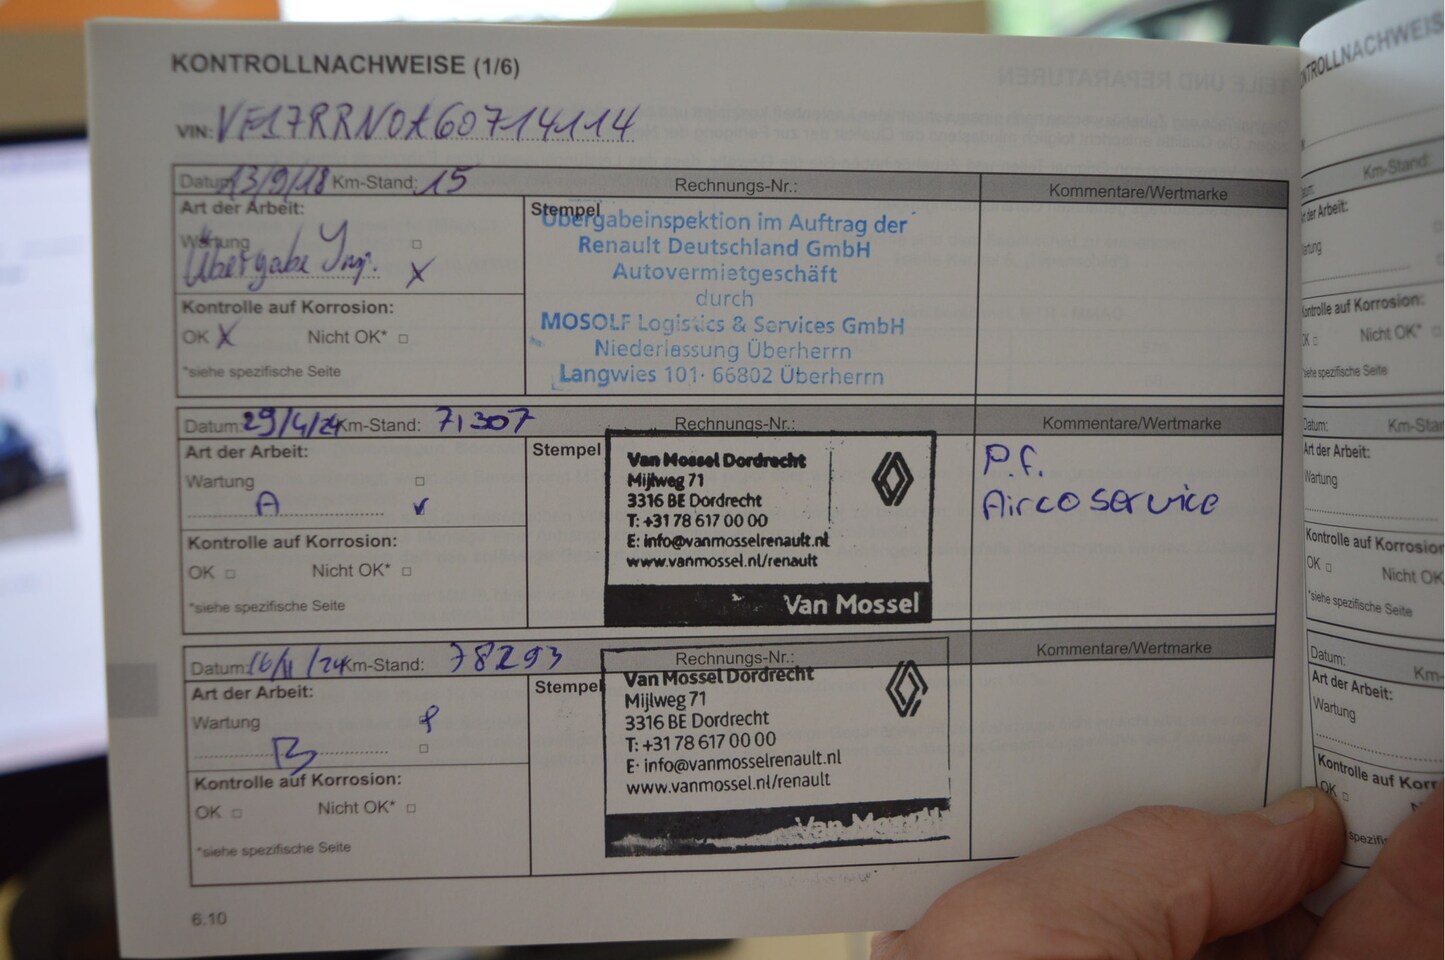 KONTROLLNACHWEISE (1/6)
VIN:
Datum: 13/9/18 Km-Stand: 15 Rechnungs-Nr.: Kommentare/Wertmarke
Art der Arbeit:
Wartung
Übergabe Insp. X
Kontrolle auf Korrosion:
OK X Nicht OK*
*siehe spezifische Seite
Stempel
Übergabeinspektion im Auftrag der
Renault Deutschland GmbH
Autovermietgeschäft
durch
MOSOLF Logistics & Services GmbH
Niederlassung Überherrn
Langwies 101· 66802 Überherrn
Datum: 29/4/24 Km-Stand: 71307 Rechnungs-Nr.: Kommentare/Wertmarke
Art der Arbeit:
Wartung
A
Kontrolle auf Korrosion:
OK Nicht OK*
*siehe spezifische Seite
Stempel
Van Mossel Dordrecht
Mijlweg 71
3316 BE Dordrecht
T: +31 78 617 00 00
E: info@vanmosselrenault.nl
www.vanmossel.nl/renault
Van Mossel
P.f.
Aircoservice
Datum: 16/11/24 Km-Stand: 78293 Rechnungs-Nr.: Kommentare/Wertmarke
Art der Arbeit:
Wartung
B
Kontrolle auf Korrosion:
OK Nicht OK*
*siehe spezifische Seite
Stempel
Van Mossel Dordrecht
Mijlweg 71
3316 BE Dordrecht
T: +31 78 617 00 00
E: info@vanmosselrenault.nl
www.vanmossel.nl/renault
Van Mossel
6.10
Km-Stand:
Kontrolle auf Korrosion:
Nicht OK*
Datum:
Art der Arbeit:
Wartung
Kontrolle auf Korrosion
OK Nicht OK
*siehe spezifische Seite
Datum:
Art der Arbeit:
Wartung
Kontrolle auf Korr
OK